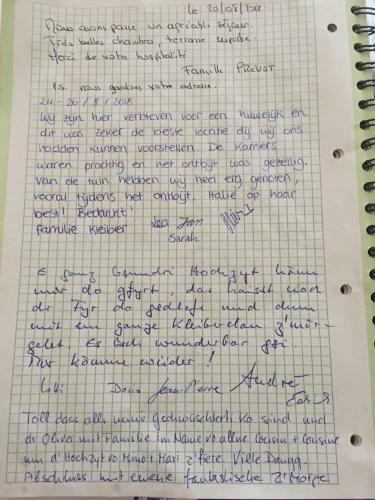 le 20/08/2018
Nous avons passé un agréable séjour.
Très belles chambres, terrasse superbe.
Merci de votre hospitalité
Famille PREVOT
P.S. nous gardons votre adresse.
24 - 26 / 8 / 2018
Wij zijn hier verbleven voor een huwelijk en
dit was zeker de beste locatie dij wij ons
hadden kunnen voorstellen. De kamers
waren prachtig en het ontbijt was gezellig.
Van de tuin hebben wij heel erg genoten,
vooral tijdens het ontbijt. Italië op haar
best! Bedankt!
Familie Kleiber Lea Jan
Sarah
E ganz Hochzyt
mir do gfyrt, das haisst noch
dr Fyr do gschlofe und denn
mit em ganze Kleiberclan z'mör-
gelet. Es isch wunderbar gsi.
Mir kömme wieder!
Jean-Pierre André
Toll dass alli unseri ko sind und
dr Oliver mit Familie im Name vo allne Cousin + Cousine
um d'Hochzyt vo + Mari z'fiire. Ville Dangg.
Abschluss mit eme fantastische Z'Morge